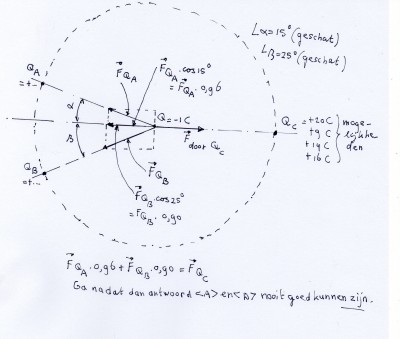 ∠α=15° (geschat)
∠β=25° (geschat)
F⃗QA
F⃗QA . cos 15°
= F⃗QA . 0,96
QA
=+--
α
Q=-1C
QC = +20C
+9C
+14C
+16C
moge-
lijkhe
den
F⃗ door QC
β
F⃗QB
QB
=+--
F⃗QB . cos 25°
= F⃗QB . 0,90
F⃗QA . 0,96 + F⃗QB . 0,90 = F⃗QC
Ga na dat dan antwoord <A> en <D> nooit goed kunnen zijn.